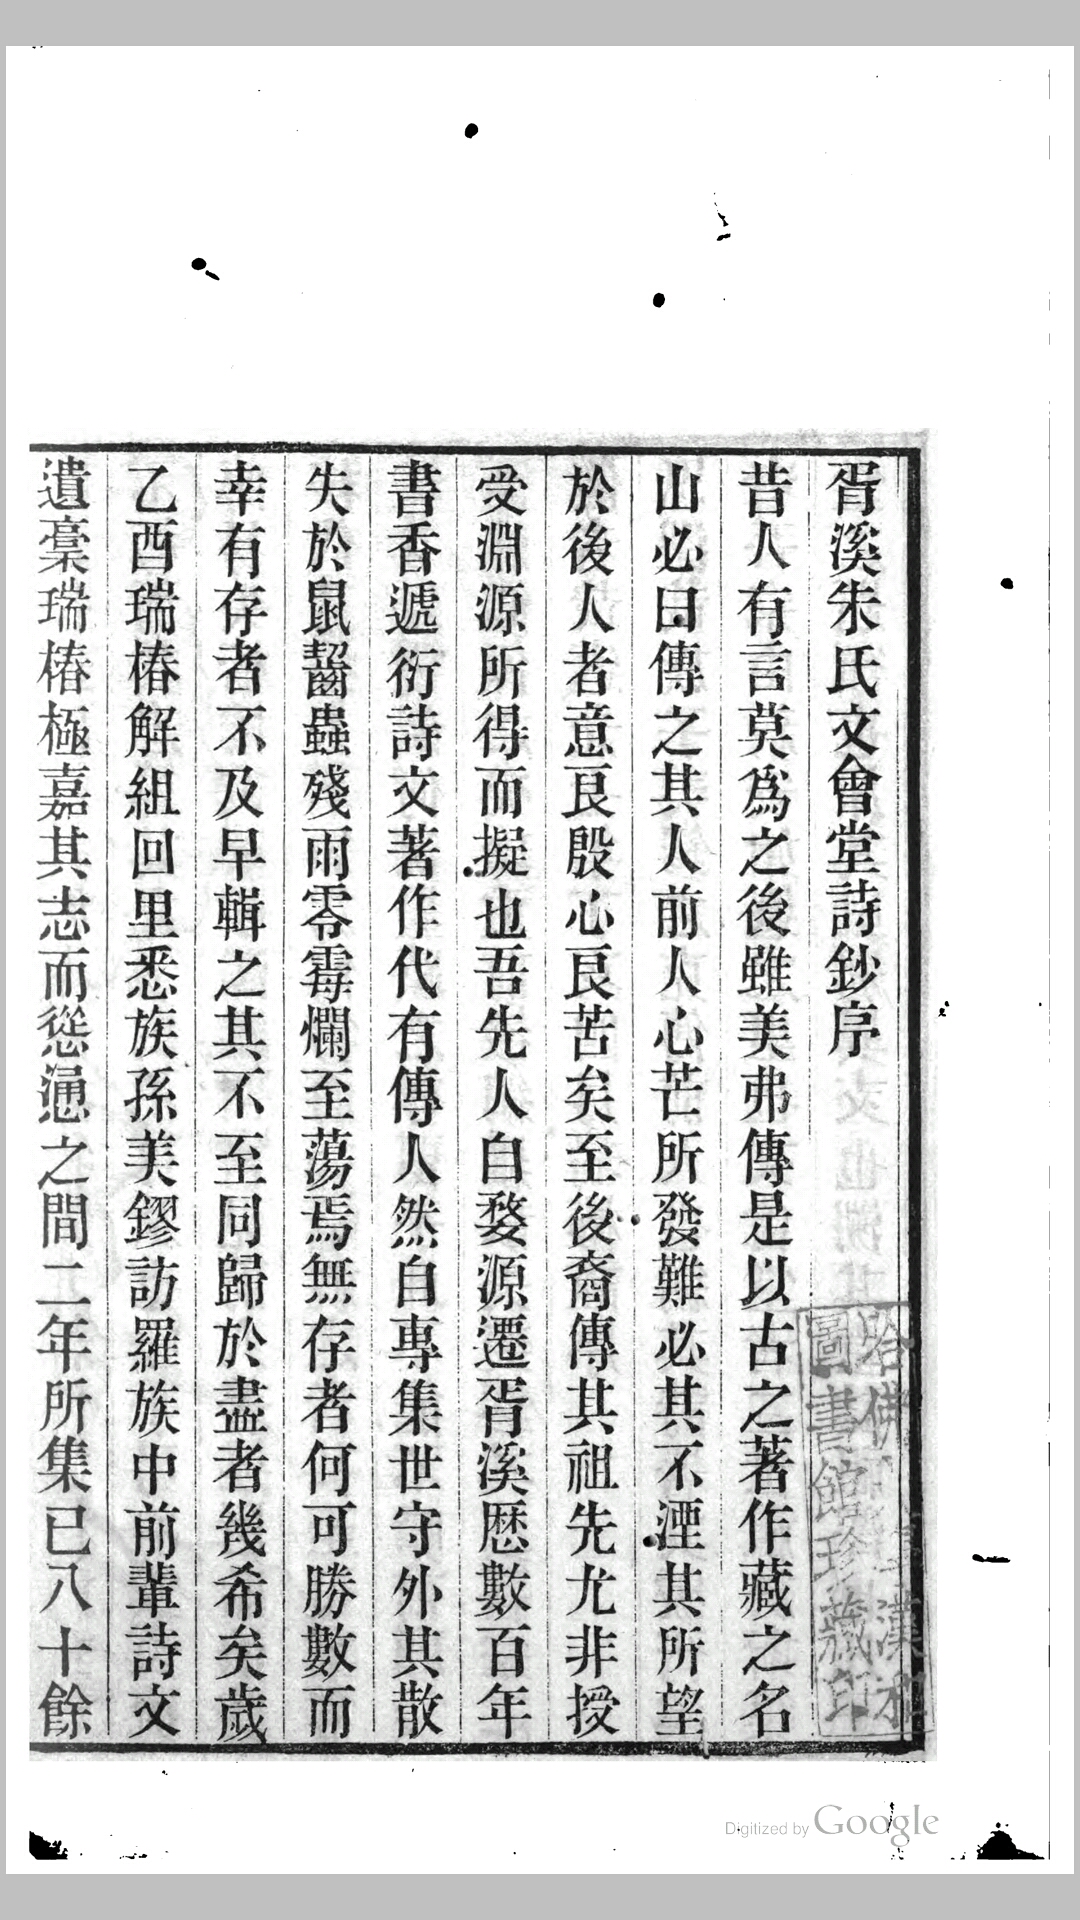 胥溪朱氏文會堂詩鈔序
昔人有言莫爲之後雖美弗傳是以古之著作藏之名
山必曰傳之其人前人心芒所發難必其不湮其所望
於後人者意良殷心良苦矣至後裔傳其祖先尤非授
受淵源所得而擬也吾先人自婺源遷胥溪歷數百年
書香遞衍詩文著作代有傳人然自專集世守外其散
失於鼠齧蟲殘雨零霉爛至蕩焉無存者何可勝數而
幸有存者不及早輯之其不至同歸於盡者幾希矣歲
乙酉瑞椿解組回里悉族孫美鏐訪羅族中前輩詩文
遺稾瑞椿極嘉其志而慫慂之間二年所集已八十餘
哈佛漢和
圖書館珍藏印
Digitized by Google